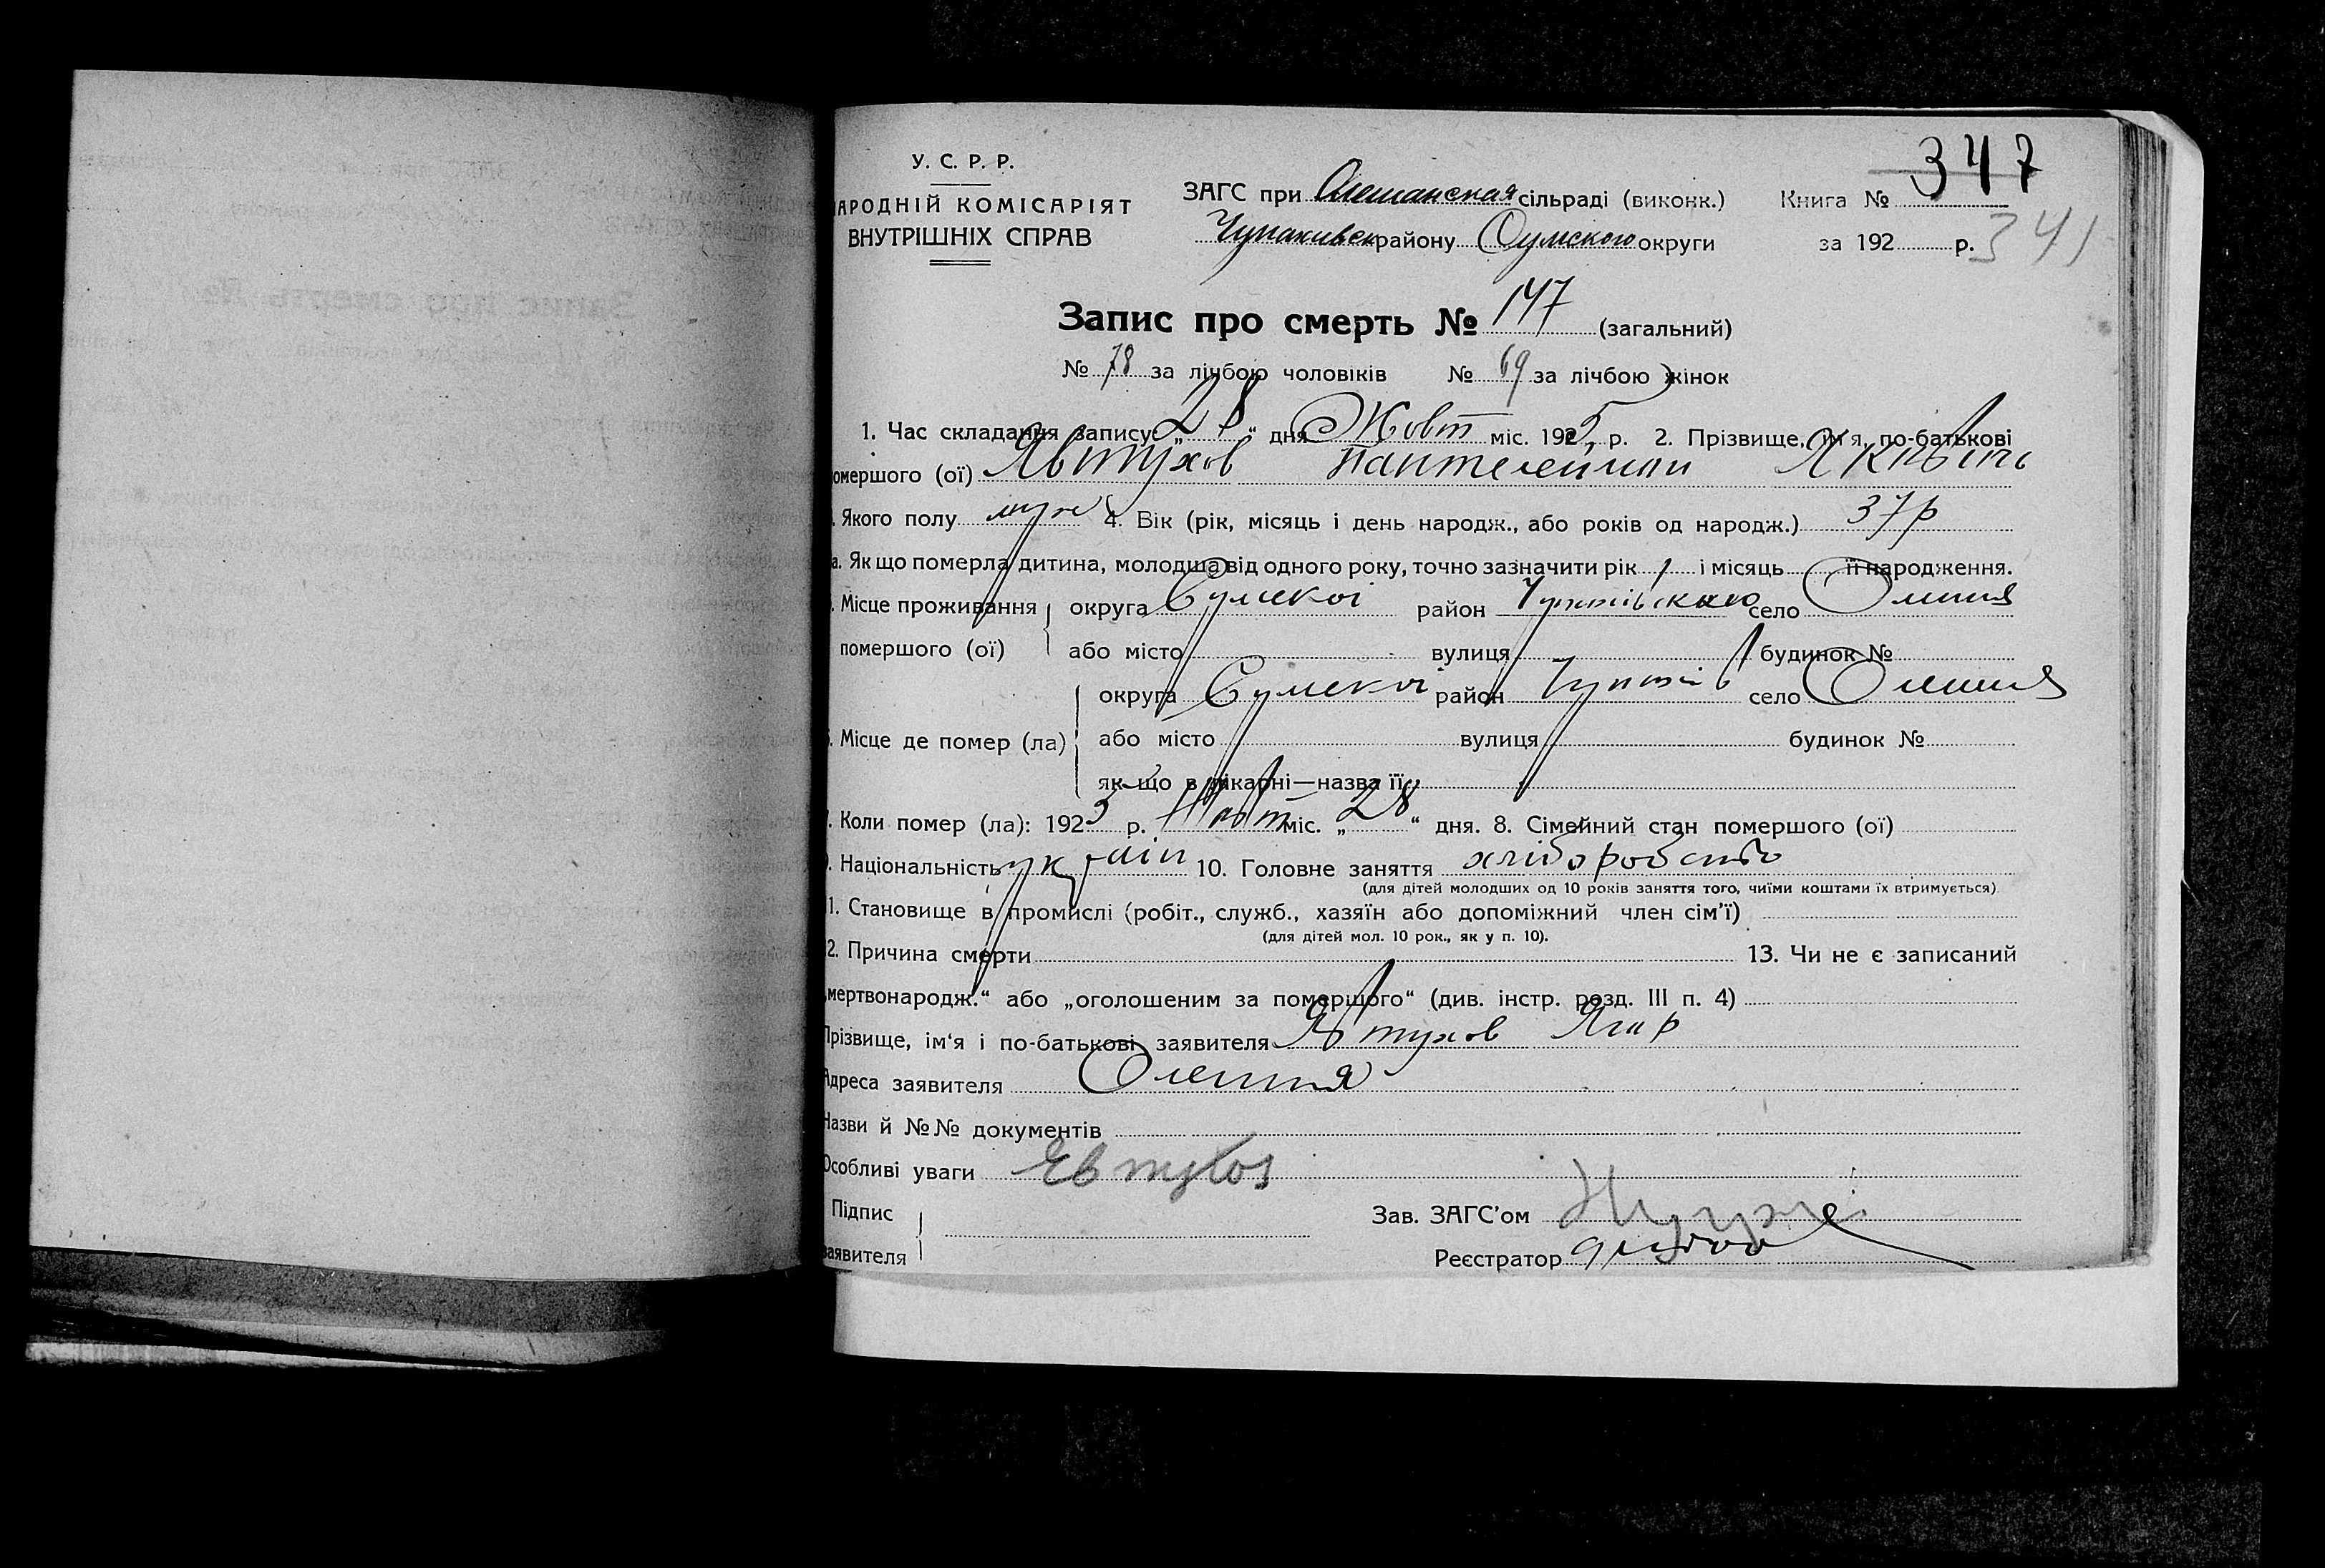 347
У. С. Р. Р.
ЗАГС при Олешанская сільраді (виконк.) Книга №
АРОДНІЙ КОМІСАРІЯТ
ВНУТРІШНІХ СПРАВ
Чупахивск району Сумского округи за 192 р. 341
Запис про смерть № 147 (загальний)
№ 78 за лічбою чоловіків № 69 за лічбою жінок
1. Час складання запису: „28“ дня Жовт міс. 1925 р. 2. Прізвище, ім'я, по-батькові
омершого (ої) Явтухов Пантелеймон Яківич
Якого полу муж 4. Вік (рік, місяць і день народж., або років од народж.) 37 р
а. Як що померла дитина, молодша від одного року, точно зазначити рік і місяць її народження.
Місце проживання округа Сумскої район село Олешня
помершого (ої) або місто вулиця будинок №
округа Сумскої район село Олешня
Місце де помер (ла) або місто вулиця будинок №
як-що в лікарні—назва її
Коли помер (ла): 1925 р. Жовт міс. „28“ дня. 8. Сімейний стан помершого (ої)
Національність україн 10. Головне заняття хліборобство
(для дітей молодших од 10 років заняття того, чиїми коштами їх втримується)
1. Становище в промислі (робіт., служб., хазяїн або допоміжний член сім'ї)
(для дітей мол. 10 рок., як у п. 10).
2. Причина смерти 13. Чи не є записаний
„мертвонародж.“ або „оголошеним за помершого“ (див. інстр. розд. III п. 4)
Прізвище, ім'я і по-батькові заявителя Явтухов
Адреса заявителя Олешня
Назви й №№ документів
Особливі уваги Евтухов
Підпис
заявителя
Зав. ЗАГС'ом
Реєстратор